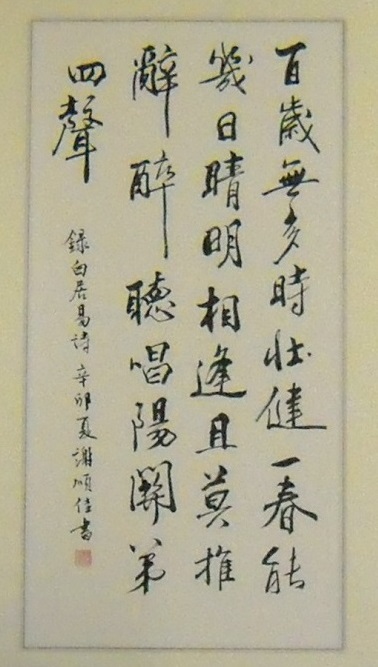 百歲無多時壯健一春能
幾日晴明相逢且莫推
辭醉聽唱陽關第
四聲
録白居易詩辛卯夏謝順佳書